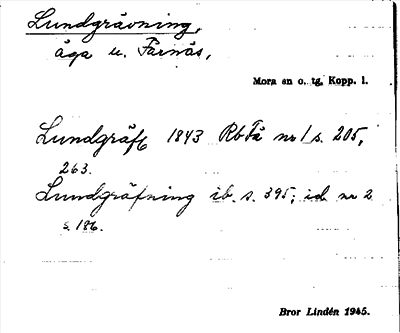 Lundgrävning,
äga u. Färnäs,
Mora sn o. tg, Kopp. l.
Lundgräfg 1843 RbFä nr 1 s. 205,
263.
Lundgräfning ib. s. 395; id. nr 2
s. 186.
Bror Lindén 1945.